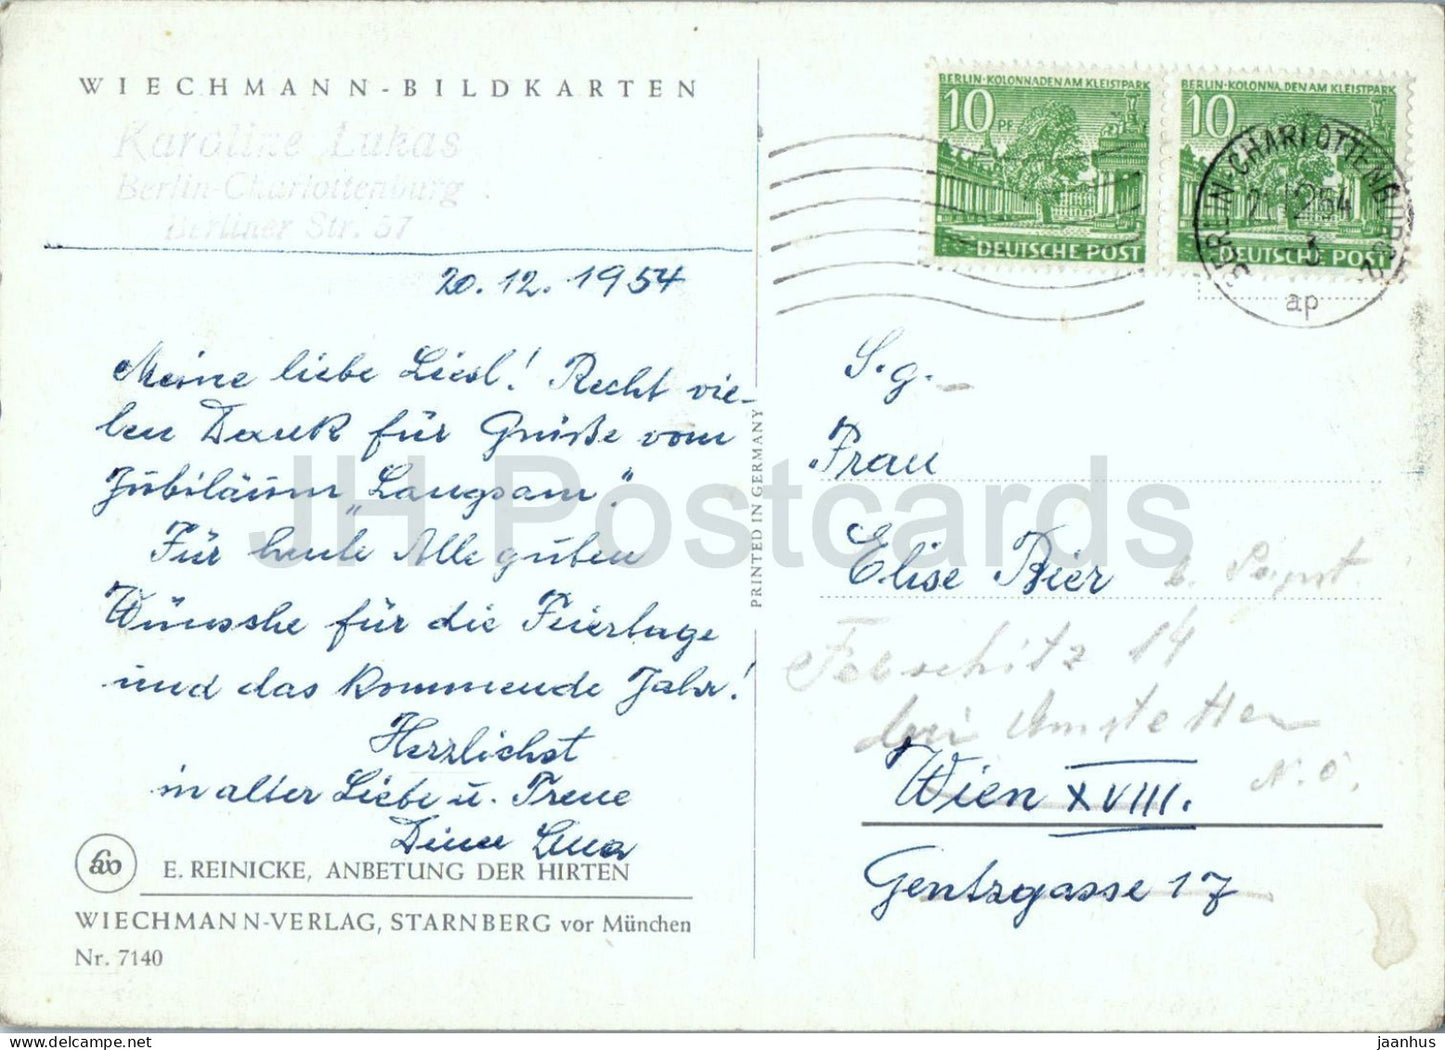 WIECHMANN-BILDKARTEN
Karoline Lukas
Berlin-Charlottenburg
Berliner Str. 57
20.12.1954
Meine liebe Liesl! Recht vie-
len Dank für Grüße vom
Jubiläum „Langsam".
Für heute Alle guten
Wünsche für die Feiertage
und das kommende Jahr!
Herzlichst
in alter Liebe u. Treue
Deine
E. REINICKE, ANBETUNG DER HIRTEN
WIECHMANN-VERLAG, STARNBERG vor München
Nr. 7140
PRINTED IN GERMANY
BERLIN·KOLONNADEN AM KLEISTPARK
10 PF
DEUTSCHE POST
BERLIN·KOLONNADEN AM KLEISTPARK
10
DEUTSCHE POST
BERLIN-CHARLOTTENBURG
ap
S.g.
Frau
Elise Bier
14
bei Amstetten
N.Ö.
Wien XVIII.
Gentzgasse 17
JH Postcards
jaanhus @ delcampe.net